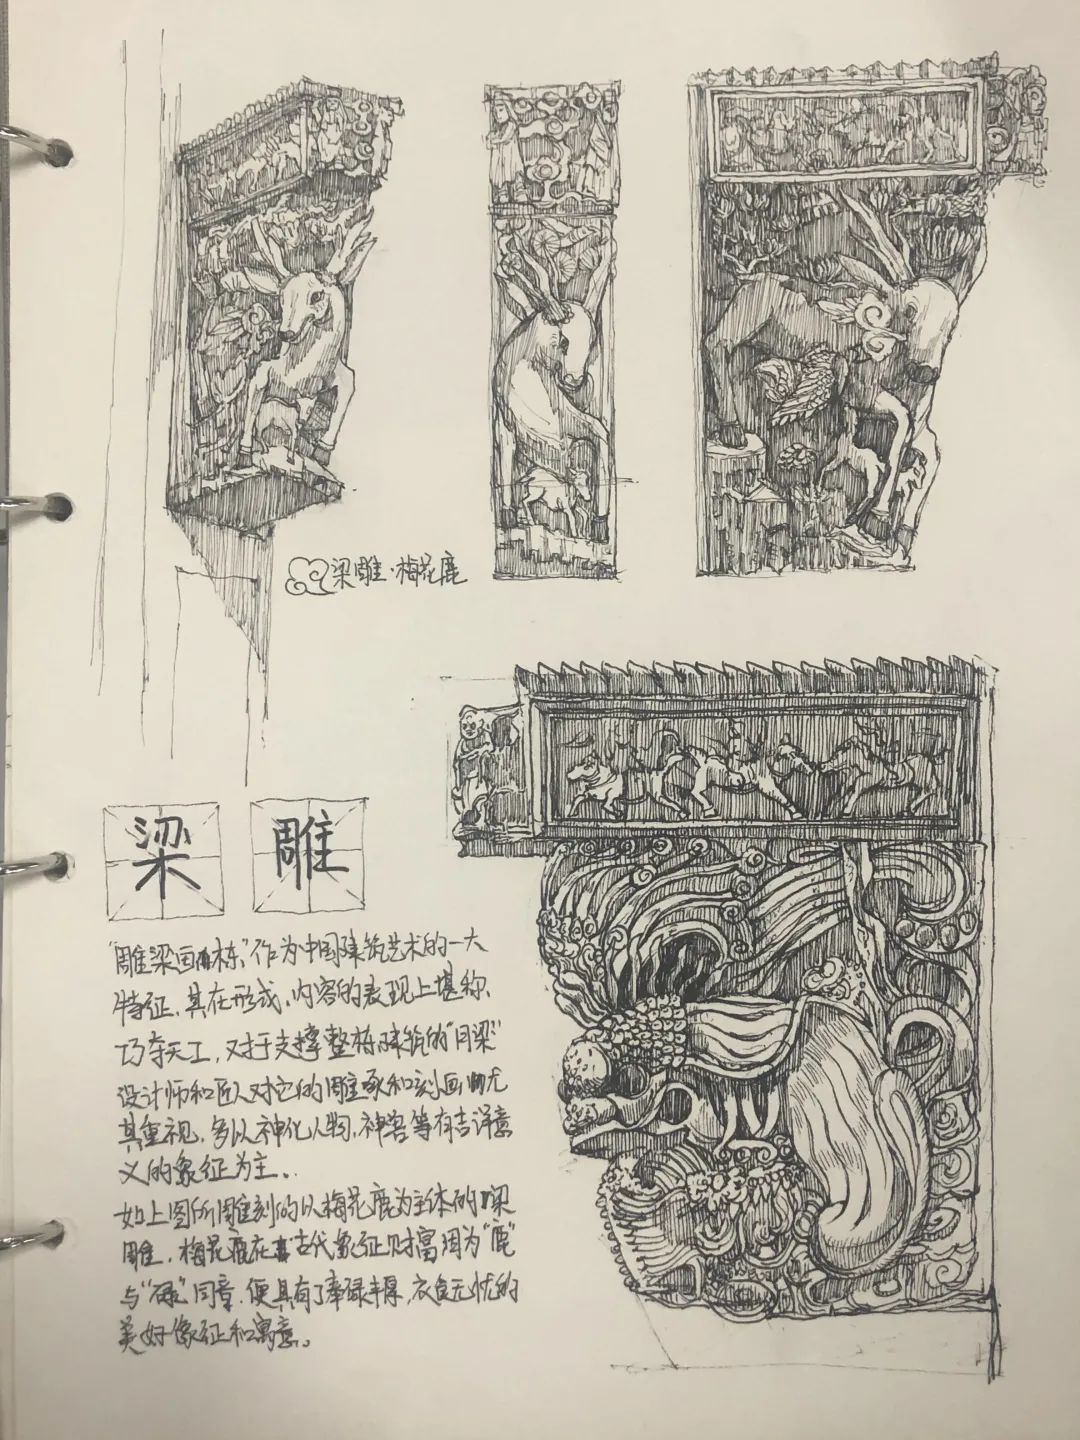 梁雕·梅花鹿
梁雕
"雕梁画栋"作为中国建筑艺术的一大
特征,其在形成、内容的表现上堪称
巧夺天工,对于支撑整栋建筑的"月梁"
设计师和匠人对它的雕琢和刻画尤
其重视,多以神化人物,神兽等有吉详意
义的象征为主..
如上图所雕刻的以梅花鹿为主体的梁
雕,梅花鹿在古代象征财富因为"鹿"
与"禄"同音,便具有了奉禄丰厚,衣食无忧的
美好像征和寓意。